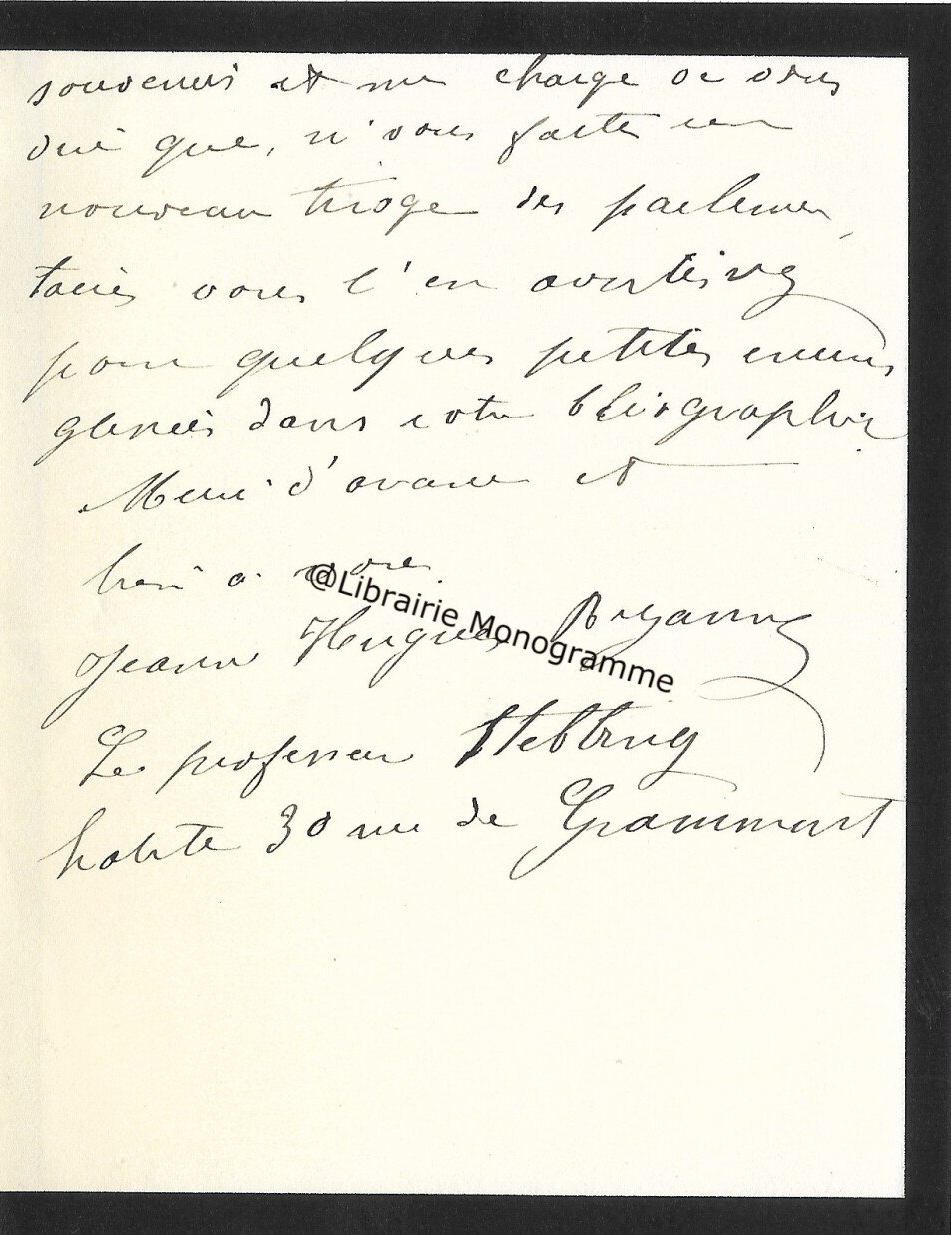 souvenirs et me charge de vous
dire que, si vous faites un
nouveau tirage des parlemen
taires vous l'en avertirez
pour quelques petites erreurs
glanées dans votre bliographie
Merci d'avance et
bien à vous
@Librairie Monogramme
Jeanne Hugues Royannez
Le professeur Stebbing
habite 30 rue de Grammont